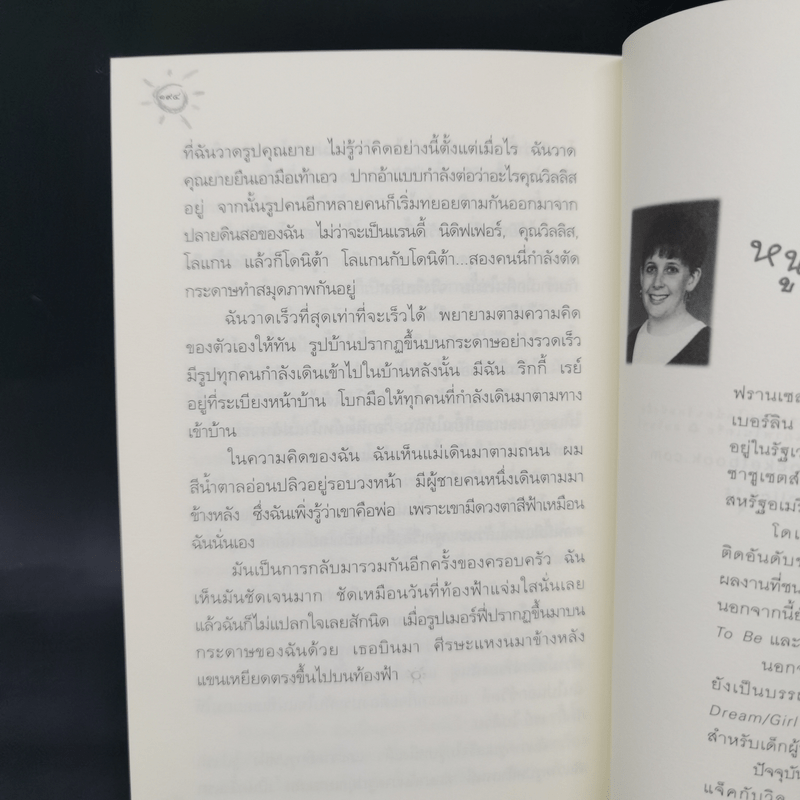 ๑๙๔
ที่ฉันวาดรูปคุณยาย ไม่รู้ว่าคิดอย่างนี้ตั้งแต่เมื่อไร ฉันวาด
คุณยายยืนเอามือเท้าเอว ปากอ้าแบบกำลังต่อว่าอะไรคุณวิลลิส
อยู่ จากนั้นรูปคนอีกหลายคนก็เริ่มทยอยตามกันออกมาจาก
ปลายดินสอของฉัน ไม่ว่าจะเป็นแรนดี้ นิดิฟเฟอร์, คุณวิลลิส,
โลแกน แล้วก็โดนิต้า โลแกนกับโดนิต้า...สองคนนี่กำลังตัด
กระดาษทำสมุดภาพกันอยู่
ฉันวาดเร็วที่สุดเท่าที่จะเร็วได้ พยายามตามความคิด
ของตัวเองให้ทัน รูปบ้านปรากฏขึ้นบนกระดาษอย่างรวดเร็ว
มีรูปทุกคนกำลังเดินเข้าไปในบ้านหลังนั้น มีฉัน ริกกี้ เรย์
อยู่ที่ระเบียงหน้าบ้าน โบกมือให้ทุกคนที่กำลังเดินมาตามทาง
เข้าบ้าน
ในความคิดของฉัน ฉันเห็นแม่เดินมาตามถนน ผม
สีน้ำตาลอ่อนปลิวอยู่รอบวงหน้า มีผู้ชายคนหนึ่งเดินตามมา
ข้างหลัง ซึ่งฉันเพิ่งรู้ว่าเขาคือพ่อ เพราะเขามีดวงตาสีฟ้าเหมือน
ฉันนั่นเอง
มันเป็นการกลับมารวมกันอีกครั้งของครอบครัว ฉัน
เห็นมันชัดเจนมาก ชัดเหมือนวันที่ท้องฟ้าแจ่มใสนั่นเลย
แล้วฉันก็ไม่แปลกใจเลยสักนิด เมื่อรูปเมอร์ฟี่ปรากฏขึ้นมาบน
กระดาษของฉันด้วย เธอบินมา ศีรษะแหงนมาข้างหลัง
แขนเหยียดตรงขึ้นไปบนท้องฟ้า
หนู
ฟรานเซส
เบอร์ลิน
อยู่ในรัฐเว
ซาชูเซตส์
สหรัฐอเมริ
โดเ
ติดอันดับข
ผลงานที่ชน
นอกจากนี้ยั
To Be และ
นอกจ
ยังเป็นบรรณ
Dream/Girl
สำหรับเด็กผู้
ปัจจุบัน
แจ็คกับวิล